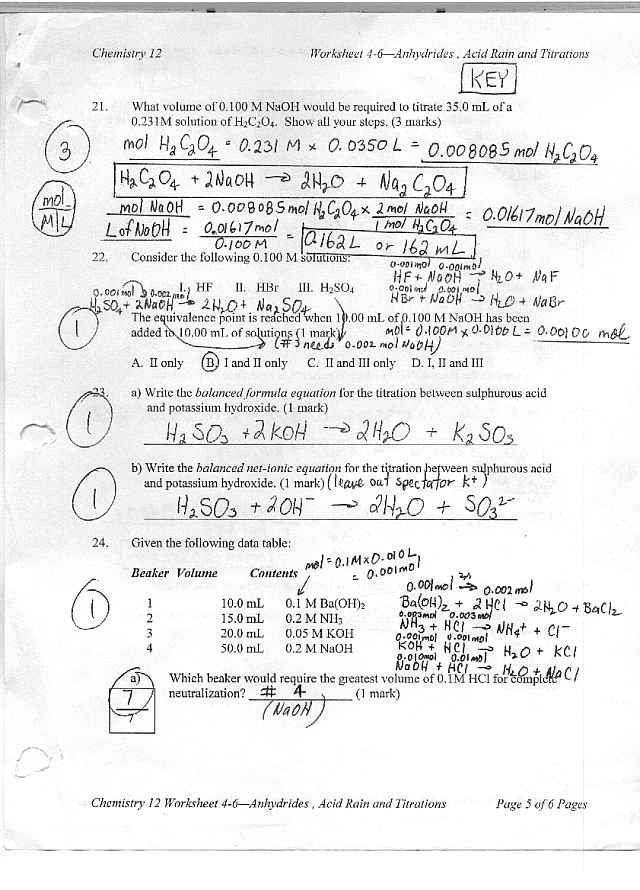 Chemistry 12 Worksheet 4-6—Anhydrides , Acid Rain and Titrations
KEY
21. What volume of 0.100 M NaOH would be required to titrate 35.0 mL of a
0.231M solution of H₂C₂O₄. Show all your steps. (3 marks)
3
mol H₂C₂O₄ = 0.231 M x 0.0350 L = 0.008085 mol H₂C₂O₄
H₂C₂O₄ + 2NaOH → 2H₂O + Na₂C₂O₄
mol
M | L
mol NaOH = 0.008085 mol H₂C₂O₄ x 2 mol NaOH / 1 mol H₂C₂O₄ = 0.01617 mol NaOH
L of NaOH = 0.01617 mol / 0.100 M = 0.162 L or 162 mL
22. Consider the following 0.100 M solutions:
0.001mol 0.001mol
HF + NaOH → H₂O + NaF
0.001 mol → 0.002 mol
I. HF II. HBr III. H₂SO₄
0.001mol 0.001mol
HBr + NaOH → H₂O + NaBr
H₂SO₄ + 2NaOH → 2H₂O + Na₂SO₄
1
The equivalence point is reached when 10.00 mL of 0.100 M NaOH has been
added to 10.00 mL of solutions (1 mark)
mol = 0.100M x 0.0100 L = 0.00100 mol
(#3 needs 0.002 mol NaOH)
A. II only B. I and II only C. II and III only D. I, II and III
23. a) Write the balanced formula equation for the titration between sulphurous acid
and potassium hydroxide. (1 mark)
1
H₂SO₃ + 2KOH → 2H₂O + K₂SO₃
b) Write the balanced net-ionic equation for the titration between sulphurous acid
and potassium hydroxide. (1 mark) (leave out spectator K⁺)
1
H₂SO₃ + 2OH⁻ → 2H₂O + SO₃²⁻
24. Given the following data table:
mol = 0.1M x 0.010L
= 0.001mol
Beaker Volume Contents
1
0.001mol → 0.002 mol
1 10.0 mL 0.1 M Ba(OH)₂
Ba(OH)₂ + 2HCl → 2H₂O + BaCl₂
0.003mol 0.003mol
2 15.0 mL 0.2 M NH₃
NH₃ + HCl → NH₄⁺ + Cl⁻
0.001mol 0.001mol
3 20.0 mL 0.05 M KOH
KOH + HCl → H₂O + KCl
0.010mol 0.01mol
4 50.0 mL 0.2 M NaOH
NaOH + HCl → H₂O + NaCl
a) Which beaker would require the greatest volume of 0.1M HCl for complete
neutralization? # 4 (1 mark)
(NaOH)
7
7
Chemistry 12 Worksheet 4-6—Anhydrides , Acid Rain and Titrations Page 5 of 6 Pages